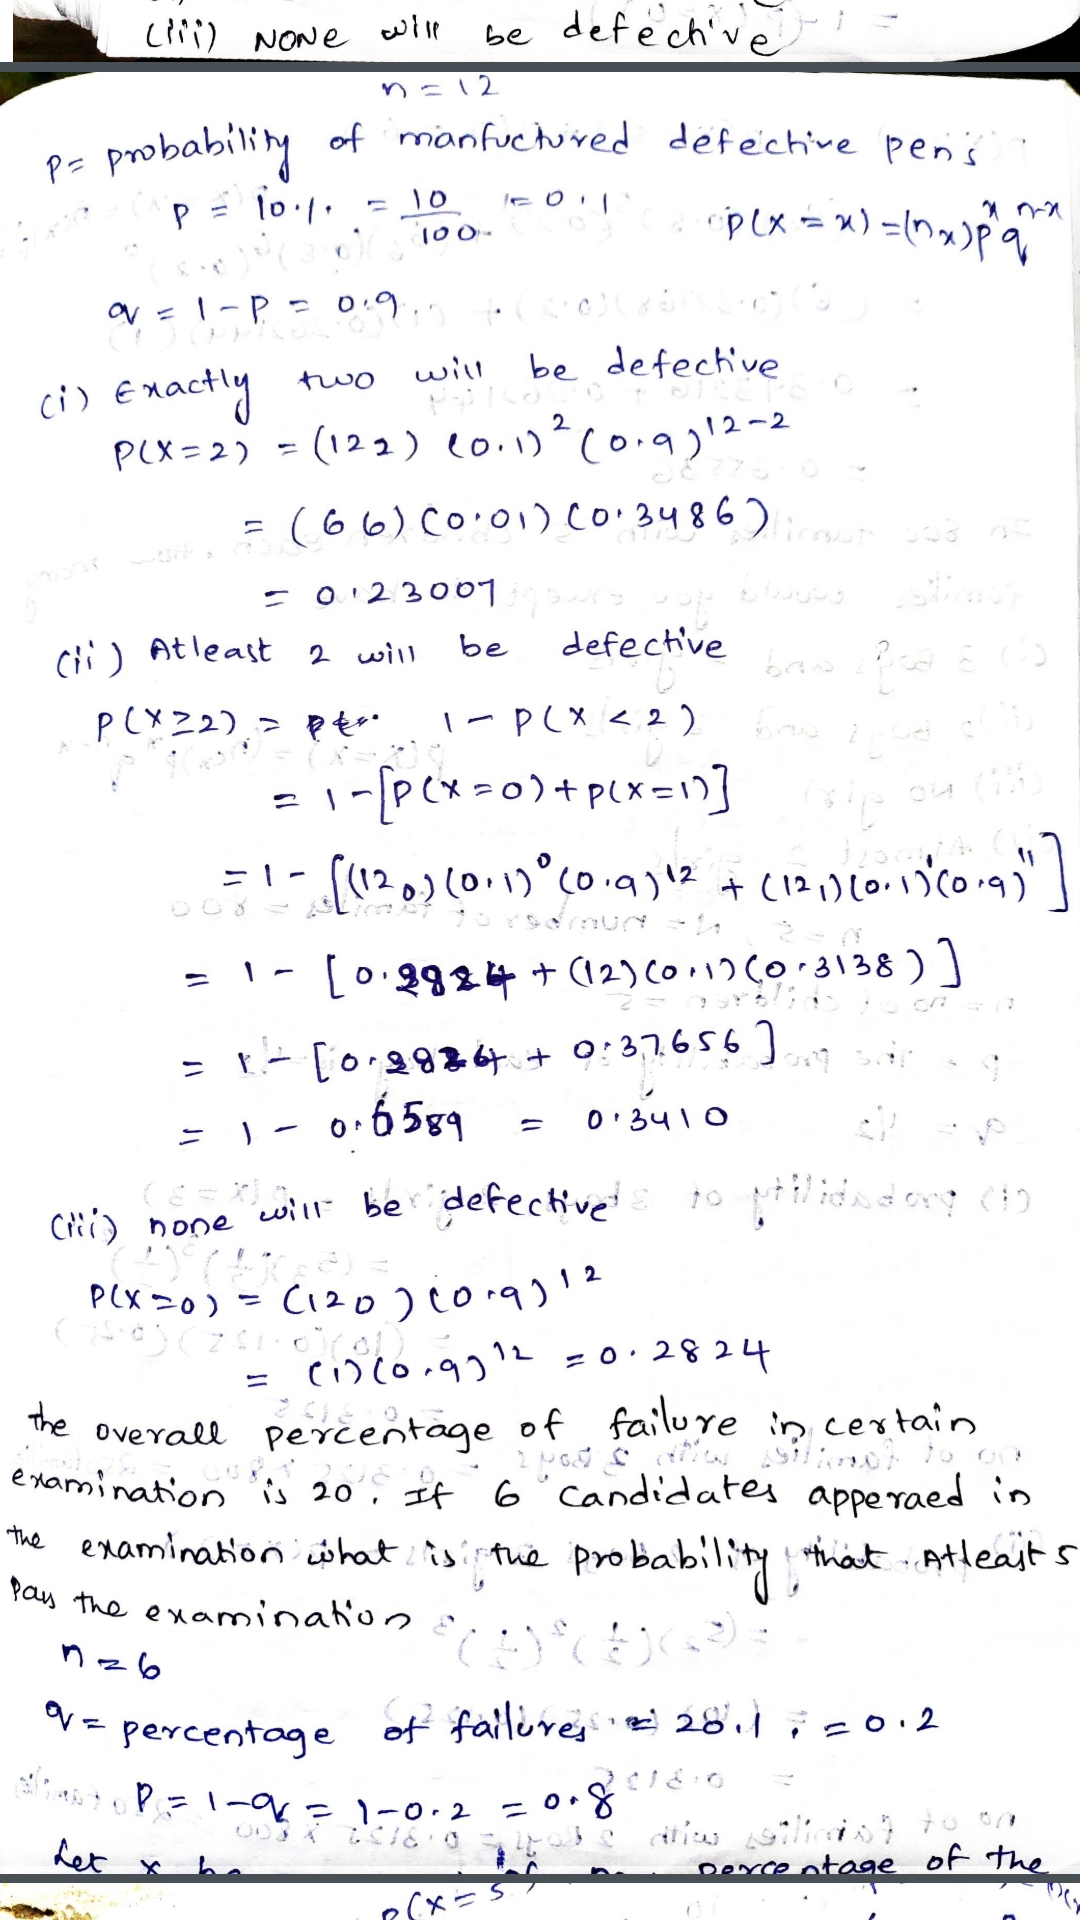 (iii) NONE will be defective
n = 12
p = probability of manfuctured defective pens
p = 10·/. = 10/100 = 0.1
P(X = x) = (nx) p^x q^n-x
q = 1 - P = 0.9
(i) Exactly two will be defective
P(X=2) = (122) (0.1)^2 (0.9)^12-2
= (66) (0.01) (0.3486)
= 0.23007
(ii) Atleast 2 will be defective
P(X≥2) = 1 - P(X < 2)
= 1 - [P(X=0) + P(X=1)]
= 1 - [(12 0) (0.1)^0 (0.9)^12 + (12 1) (0.1)^1 (0.9)^11]
= 1 - [0.2824 + (12) (0.1) (0.3138)]
= 1 - [0.2824 + 0.37656]
= 1 - 0.6589 = 0.3410
(iii) none will be defective
P(X=0) = (120) (0.9)^12
= (1) (0.9)^12 = 0.2824
the overall percentage of failure in certain
examination is 20. If 6 candidates apperaed in
the examination what is the probability that Atleast 5
Pass the examination
n = 6
q = percentage of failures = 20·/. = 0.2
P = 1-q = 1-0.2 = 0.8
Let x percentage of the
P(X = 5